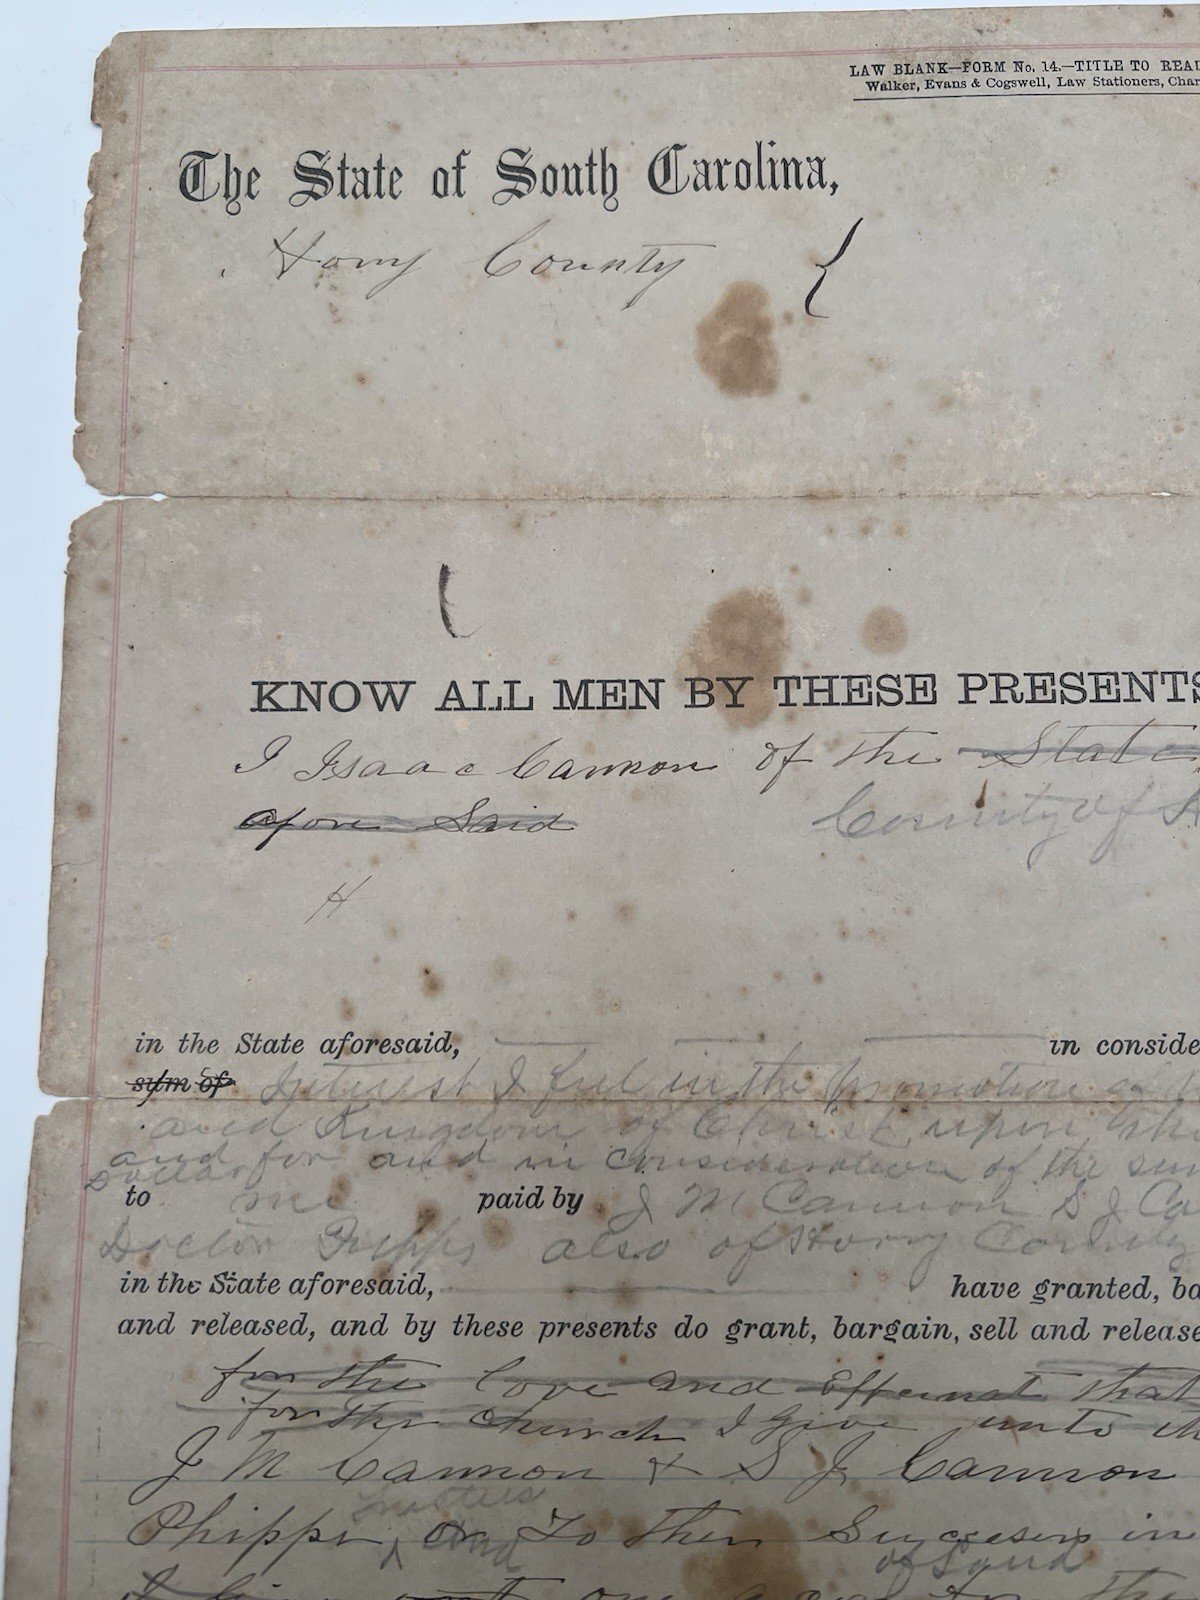 LAW BLANK—FORM No. 14.—TITLE TO REAL
Walker, Evans & Cogswell, Law Stationers, Char
The State of South Carolina,
Horry County
KNOW ALL MEN BY THESE PRESENTS
I Isaac Cannon of the State
afore Said County of H
H
in the State aforesaid, in conside
sum of Interest I feel in the Promotion of
and Kingdom of Christ upon the
and for and in consideration of the sum
Dollars
to me paid by J M Cannon S J Ca
Doctor Phipps also of Horry County
in the State aforesaid, have granted, ba
and released, and by these presents do grant, bargain, sell and release
for the love and that
for the Church I give unto th
J M Cannon & S J Cannon
trustees
Phipps or To their in
and of Said
one